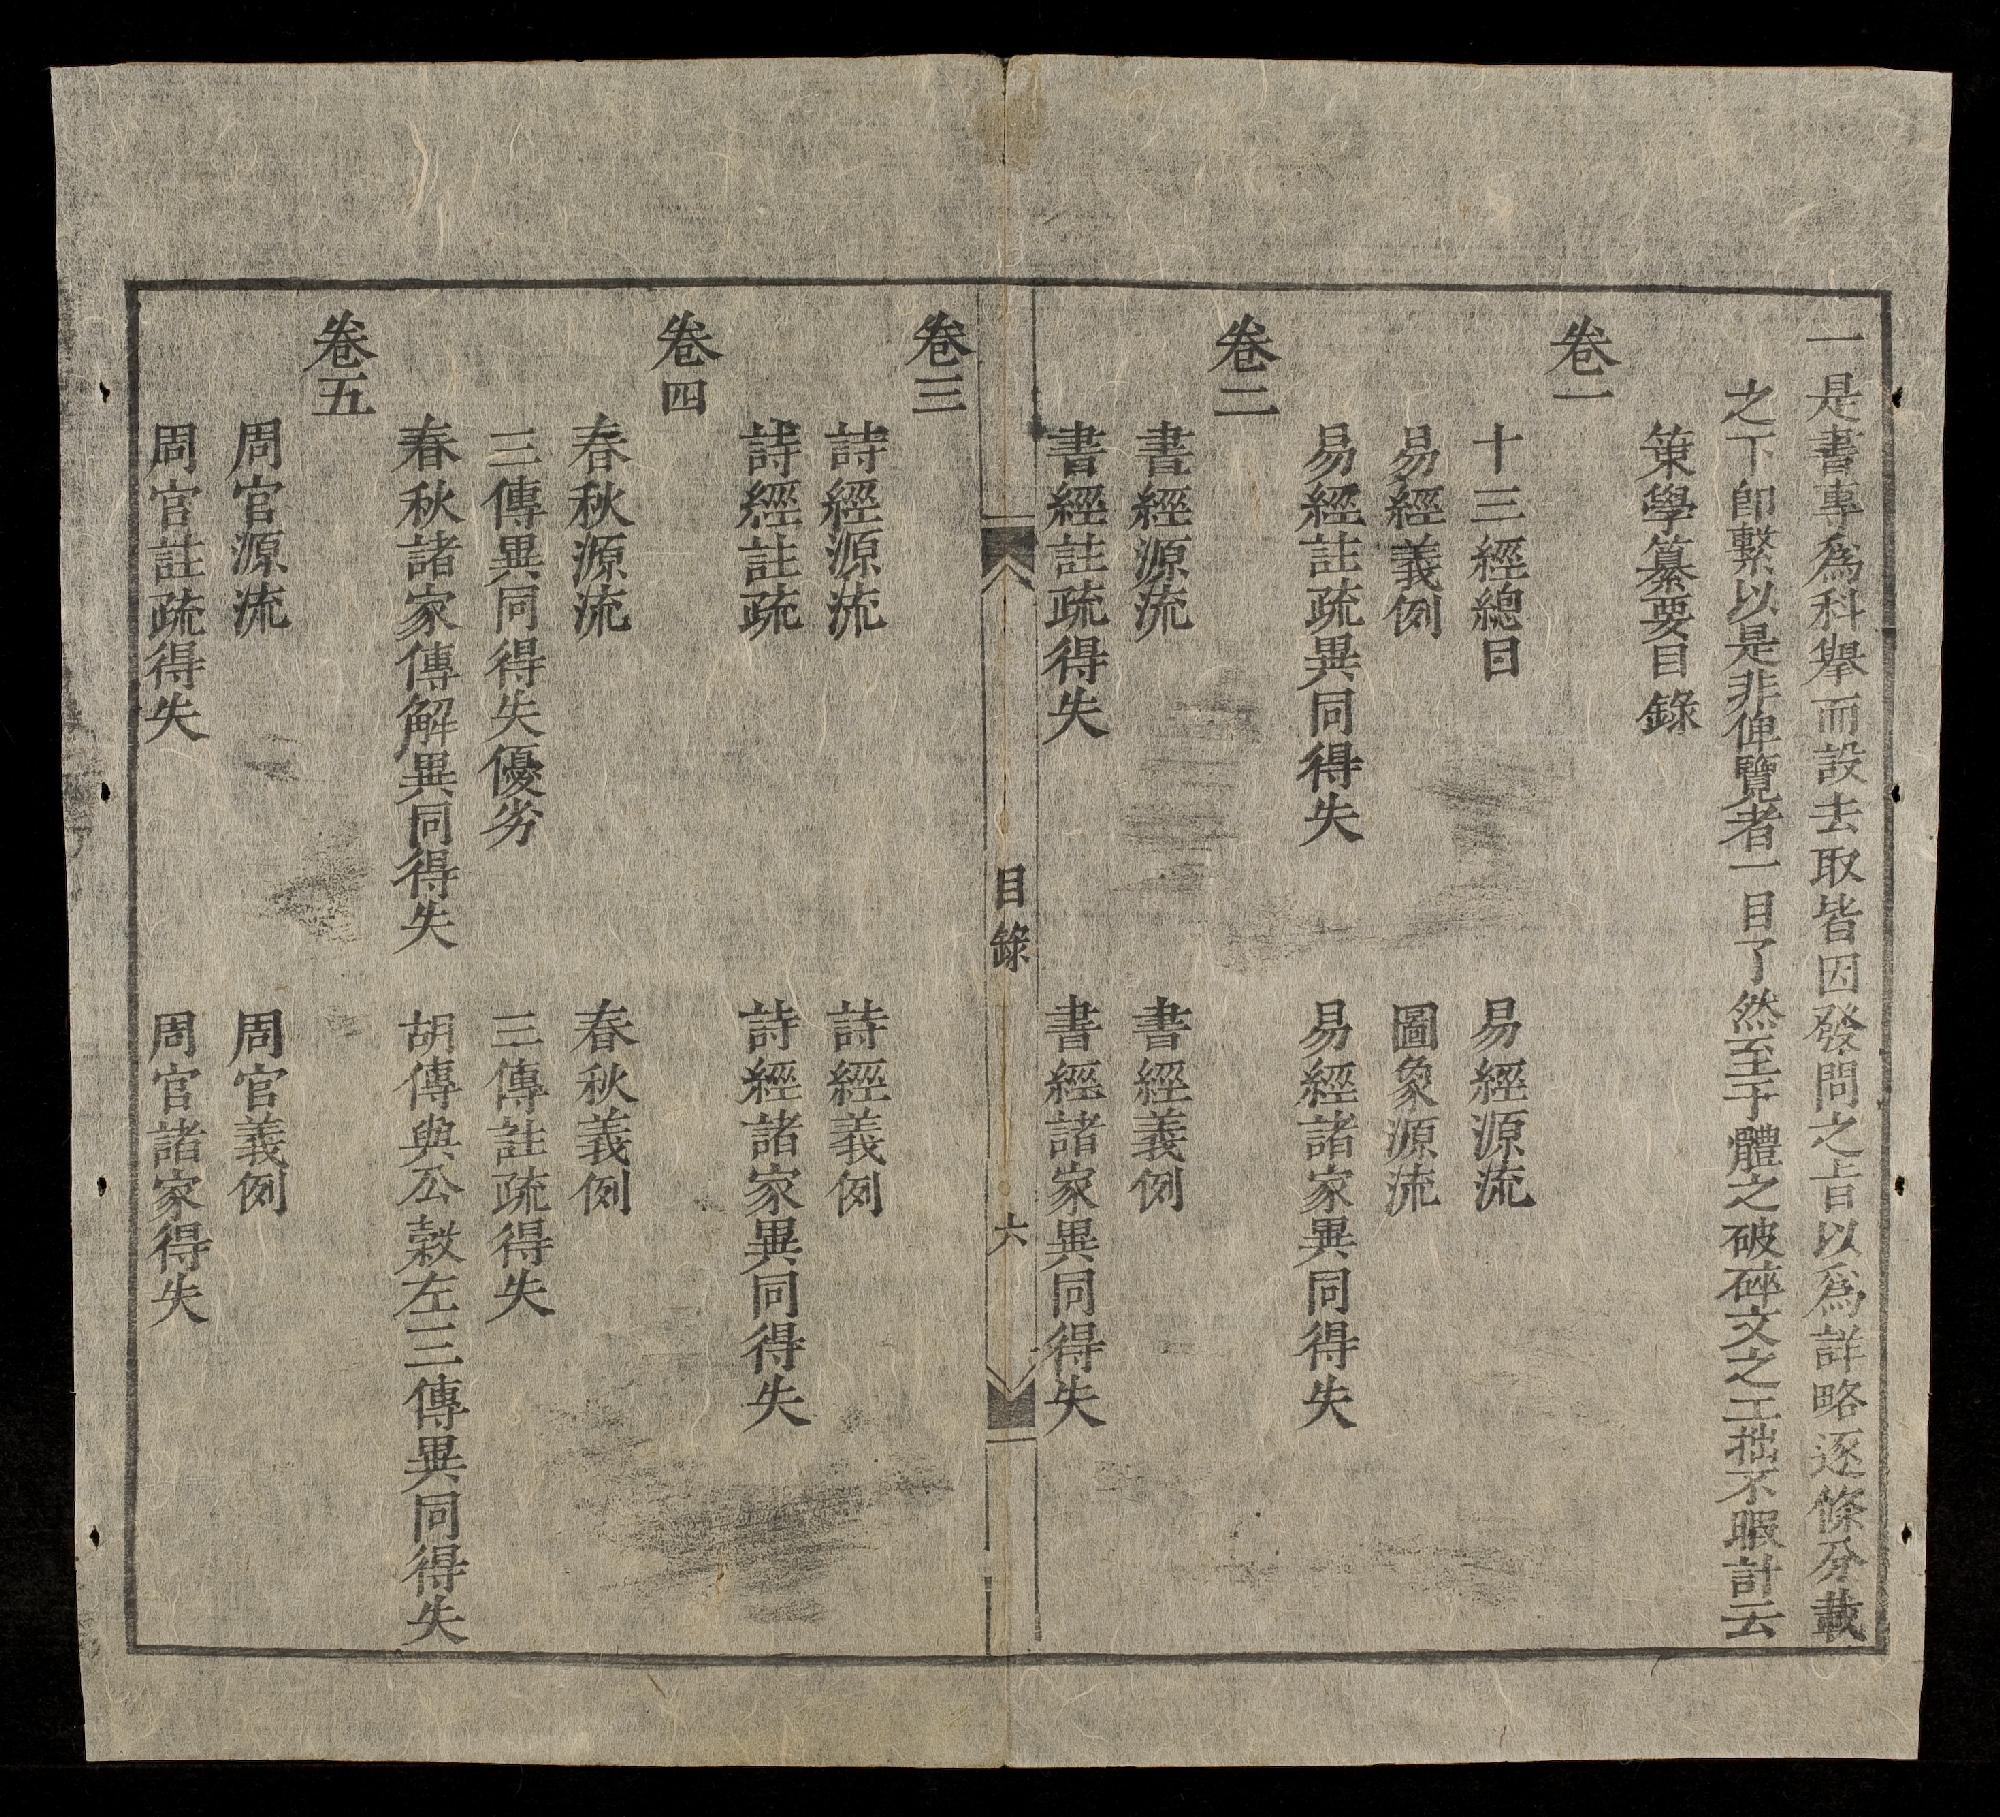 一是書專爲科舉而設去取皆因發問之旨以爲詳略逐條分載
之下卽繫以是非俾覽者一目了然至于體之破碎文之工拙不暇計云
策學纂要目錄
卷一
十三經總目　易經源流
易經義例　圖象源流
易經註疏異同得失　易經諸家異同得失
卷二
書經源流　書經義例
書經註疏得失　書經諸家異同得失
目錄　六
卷三
詩經源流　詩經義例
詩經註疏　詩經諸家異同得失
卷四
春秋源流　春秋義例
三傳異同得失優劣　三傳註疏得失
春秋諸家傳解異同得失　胡傳與公穀左三傳異同得失
卷五
周官源流　周官義例
周官註疏得失　周官諸家得失